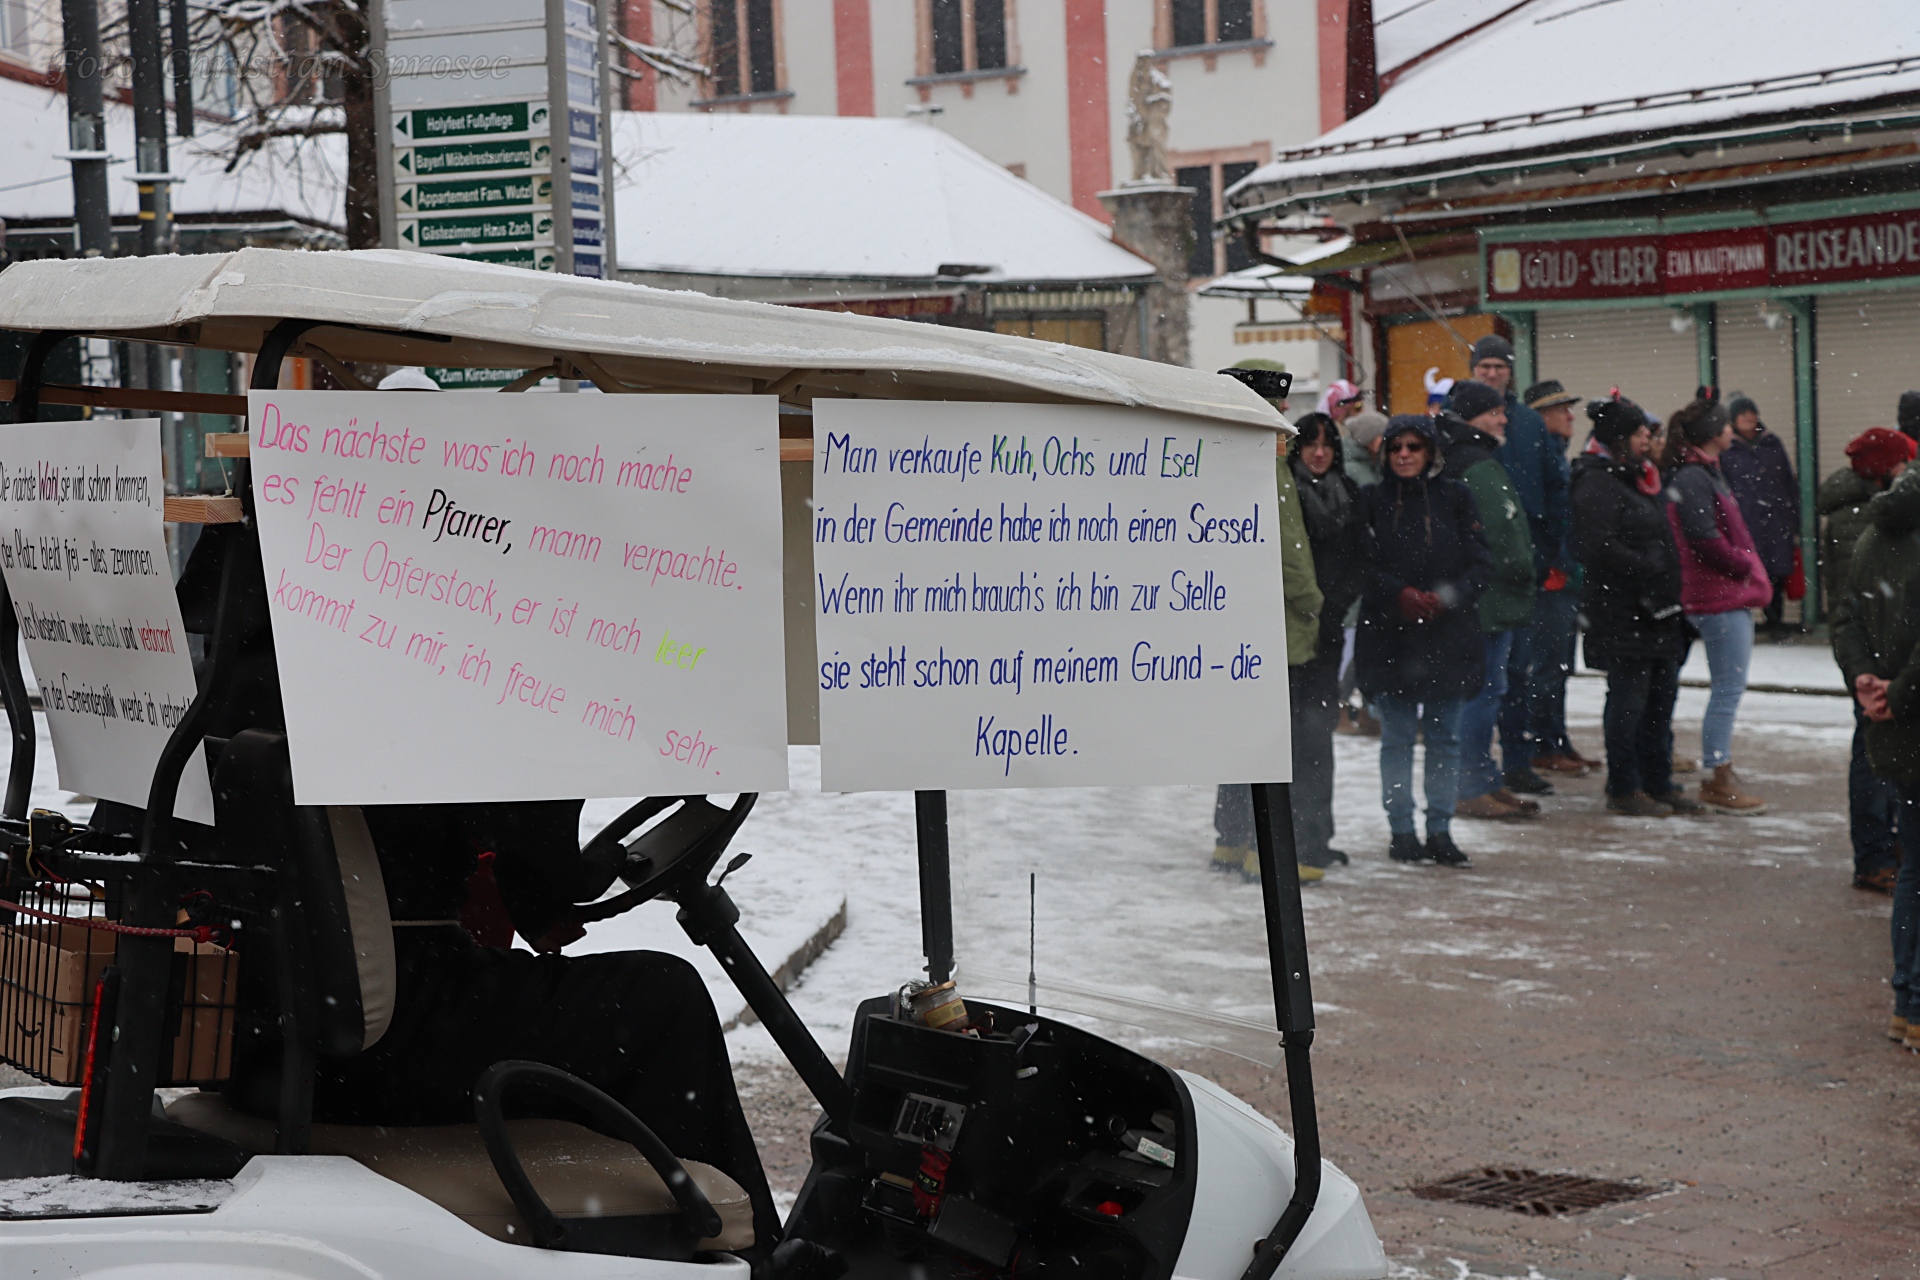 Foto: Christian Sprosec
Holyfeet Fußpflege
Bayerl Möbelrestaurierung
Appartement Fam. Wutzl
Gästezimmer Haus Zach
"Zum Kirchenwirt"
GOLD-SILBER EVA KAUFMANN REISEANDE
Die nächste Wahl, sie wird schon kommen,
der Platz bleibt frei – alles zerronnen.
Das Klosterholz wurde verkauft und verbrannt
in der Gemeindepolitik werde ich verbannt
Das nächste was ich noch mache
es fehlt ein Pfarrer, mann verpachte.
Der Opferstock, er ist noch leer
kommt zu mir, ich freue mich sehr.
Man verkaufe Kuh, Ochs und Esel
in der Gemeinde habe ich noch einen Sessel.
Wenn ihr mich brauch's ich bin zur Stelle
sie steht schon auf meinem Grund – die
Kapelle.